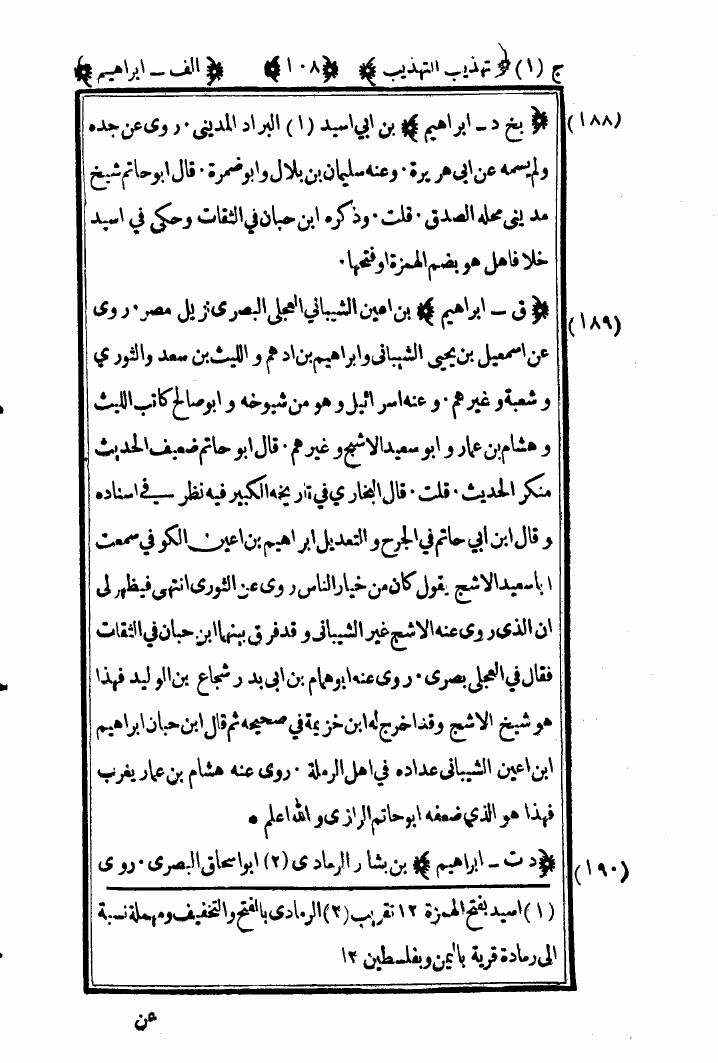 ج (١) ﴿ تهذيب التهذيب ﴾ ﴿ ١٠٨ ﴾ ﴿ الف ــ ابراهيم ﴾
(١٨٨) ﴿ بخ د ــ ابراهيم ﴾ بن ابي اسيد (١) البراد المديني ٠ روى عن جده
ولم يسمه عن ابي هريرة ٠ وعنه سليمان بن بلال وابو ضمرة ٠ قال ابو حاتم شيخ
مديني محله الصدق ٠ قلت ٠ وذكره ابن حبان في الثقات وحكى في اسيد
خلافا هل هو بضم الهمزة او فتحها ٠
(١٨٩) ﴿ ق ــ ابراهيم ﴾ بن اعين الشيباني العجلي البصرى نزيل مصر ٠ روى
عن اسمعيل بن يحيى الشيبانى وابراهيم بن ادهم و الليث بن سعد والثوري
و شعبة و غيرهم ٠ و عنه اسرائيل و هو من شيوخه و ابو صالح كاتب الليث
و هشام بن عمار و ابو سعيد الاشج و غيرهم ٠ قال ابو حاتم ضعيف الحديث
منكر الحديث ٠ قلت ٠ قال البخاري في تاريخه الكبير فيه نظر في اسناده
و قال ابن ابي حاتم في الجرح و التعديل ابراهيم بن اعين الكوفي سمعت
ابا سعيد الاشج يقول كان من خيار الناس روى عن الثورى انتهى فيظهر لى
ان الذى روى عنه الاشج غير الشيبانى و قد فرق بينهما ابن حبان في الثقات
فقال في العجلي بصرى ٠ روى عنه ابو همام بن ابى بدر شجاع بن الوليد فهذا
هو شيخ الاشج وقد اخرج له ابن خزيمة في صحيحه ثم قال ابن حبان ابراهيم
ابن اعين الشيبانى عداده في اهل الرملة ٠ روى عنه هشام بن عمار يغرب
فهذا هو الذي ضعفه ابو حاتم الرازى و الله اعلم *
(١٩٠) ﴿ د ت ــ ابراهيم ﴾ بن بشار الرمادى (٢) ابو اسحاق البصرى ٠ روى
(١) اسيد بفتح الهمزة ١٢ تقريب (٢) الرمادى بالفتح والتخفيف ومهملة نسبة
الى رمادة قرية باليمن وبفلسطين ١٢
عن